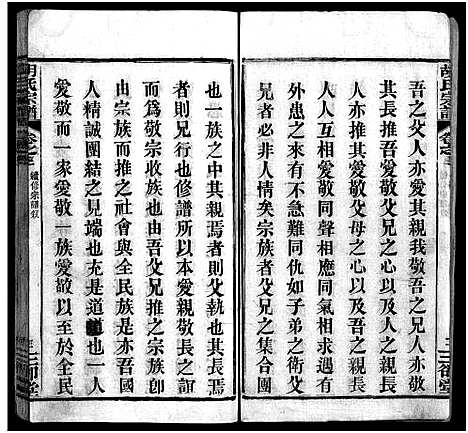 吾之父人亦愛其親我敬吾之兄人亦敬
其長推吾愛敬父兄之心以及人人之親長
亦推吾愛敬父母之心以及吾之親長
人人相愛敬同聲相應同氣相求
外來之有不急難同仇如子弟之衛父
者必非人情矣宗族者父兄之集合團
胡氏宗譜
卷之三
續修宗譜叙
也一族之中其親焉者則父執也其長焉
者則兄行也修譜所以本愛親敬長之誼
而為敬宗收族也由吾父兄推之宗族即
由宗族而推之社會與全民族是亦吾國
人精誠團結之見端也充是道也一人
愛敬而一家愛敬一族愛敬以至於全民